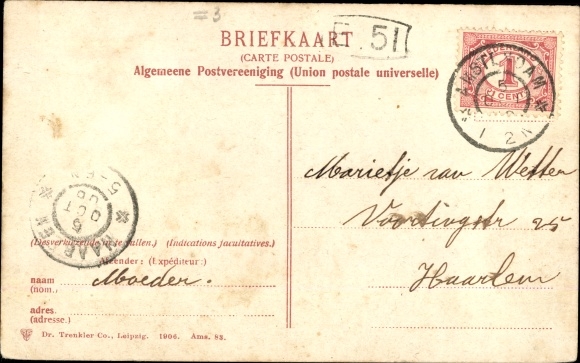 =3
BRIEFKAART
(CARTE POSTALE)
Algemeene Postvereeniging (Union postale universelle)
51
1
CENT
AMSTERDAM
5
1 2N
Marietje van Wetten
Voortingstr 25
Haarlem
HAARLEM
5
OCT
06
(Desverkiezende in te vullen.) (Indications facultatives.)
Afzender: (Expéditeur:)
naam Moeder.
(nom.)
adres.
(adresse.)
Dr. Trenkler Co., Leipzig. 1906. Ams. 83.